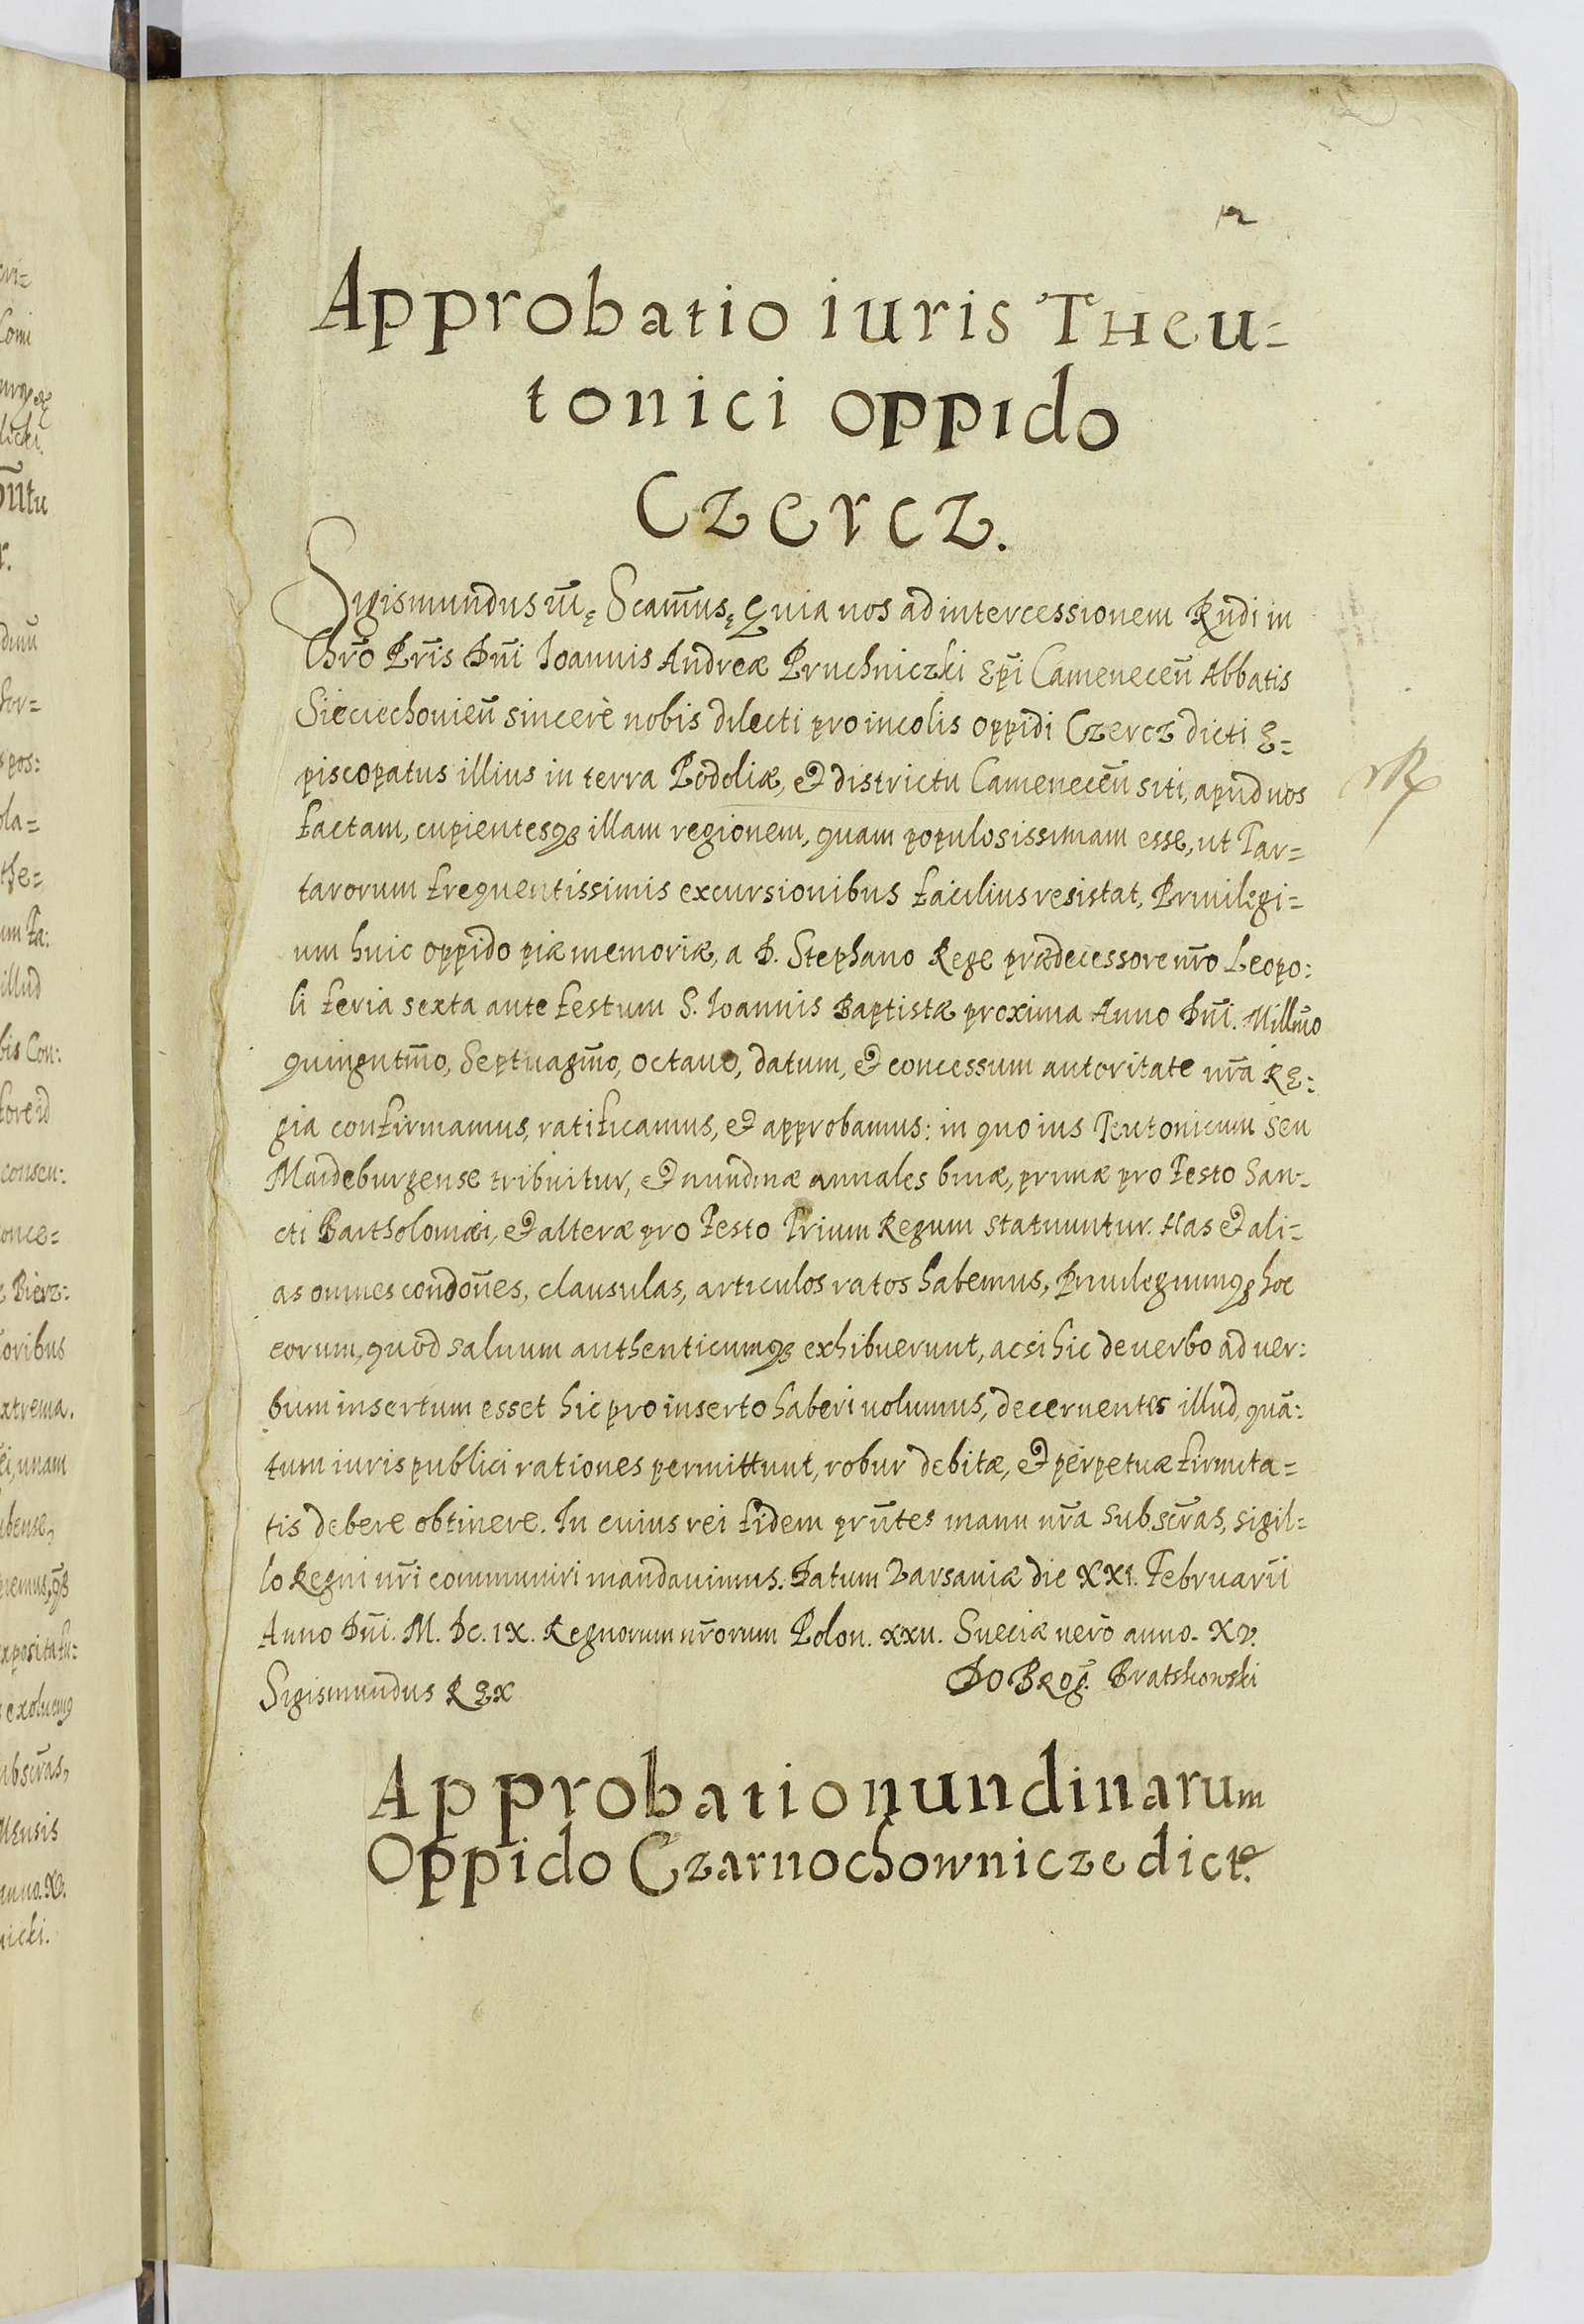 12
Approbatio iuris Theu=
tonici oppido
Czercz.
Sigismundus III. Scimus, Quia nos ad intercessionem Rndi in
Chro Pris Dni Ioannis Andreæ Pruchniczki Epi Camenecen Abbatis
Sieciechouien sincerè nobis dilecti pro incolis oppidi Czercz dicti E=
piscopatus illius in terra Podoliæ, et districtu Camenecen siti, apud nos
factam, cupientesq; illam regionem, quam populosissimam esse, ut Tar=
tarorum frequentissimis excursionibus facilius resistat, Priuilegi=
um huic oppido piæ memoriæ, a D. Stephano Rege prædecessore nro Leopo:
li feria sexta ante festum S. Ioannis Baptistæ proxima Anno Dni. Millmo
quingntmo, Septuagmo, octauo, datum, et concessum autoritate nra Re:
gia confirmamus, ratificamus, et approbamus: in quo ius Teutonicum seu
Maideburgense tribuitur, et nundinæ annales binæ, primæ pro Festo San=
cti Bartholomæi, et alteræ pro Festo Trium Regum statuuntur. Has et ali=
as omnes condones, clausulas, articulos ratos habemus, Priuilegiumq; hoc
eorum, quod saluum authenticumq; exhibuerunt, ac si hic de uerbo ad uer:
bum insertum esset hic pro inserto haberi uolumus, decernentes illud, quã:
tum iuris publici rationes permittunt, robur debitæ, et perpetuæ firmita=
tis debere obtinere. In cuius rei fidem prntes manu nra subscras, sigil=
lo Regni nri communiri mandauimus. Datum Varsauiæ die XXI. Februarii
Anno Dni. M. DC. IX. Regnorum nrorum Polon. XXII. Sueciæ uerò anno. XV.
Sigismundus Rex
Dobrog. Bratkowski
Approbatio nundinarum
Oppido Czarnochownicze dicto